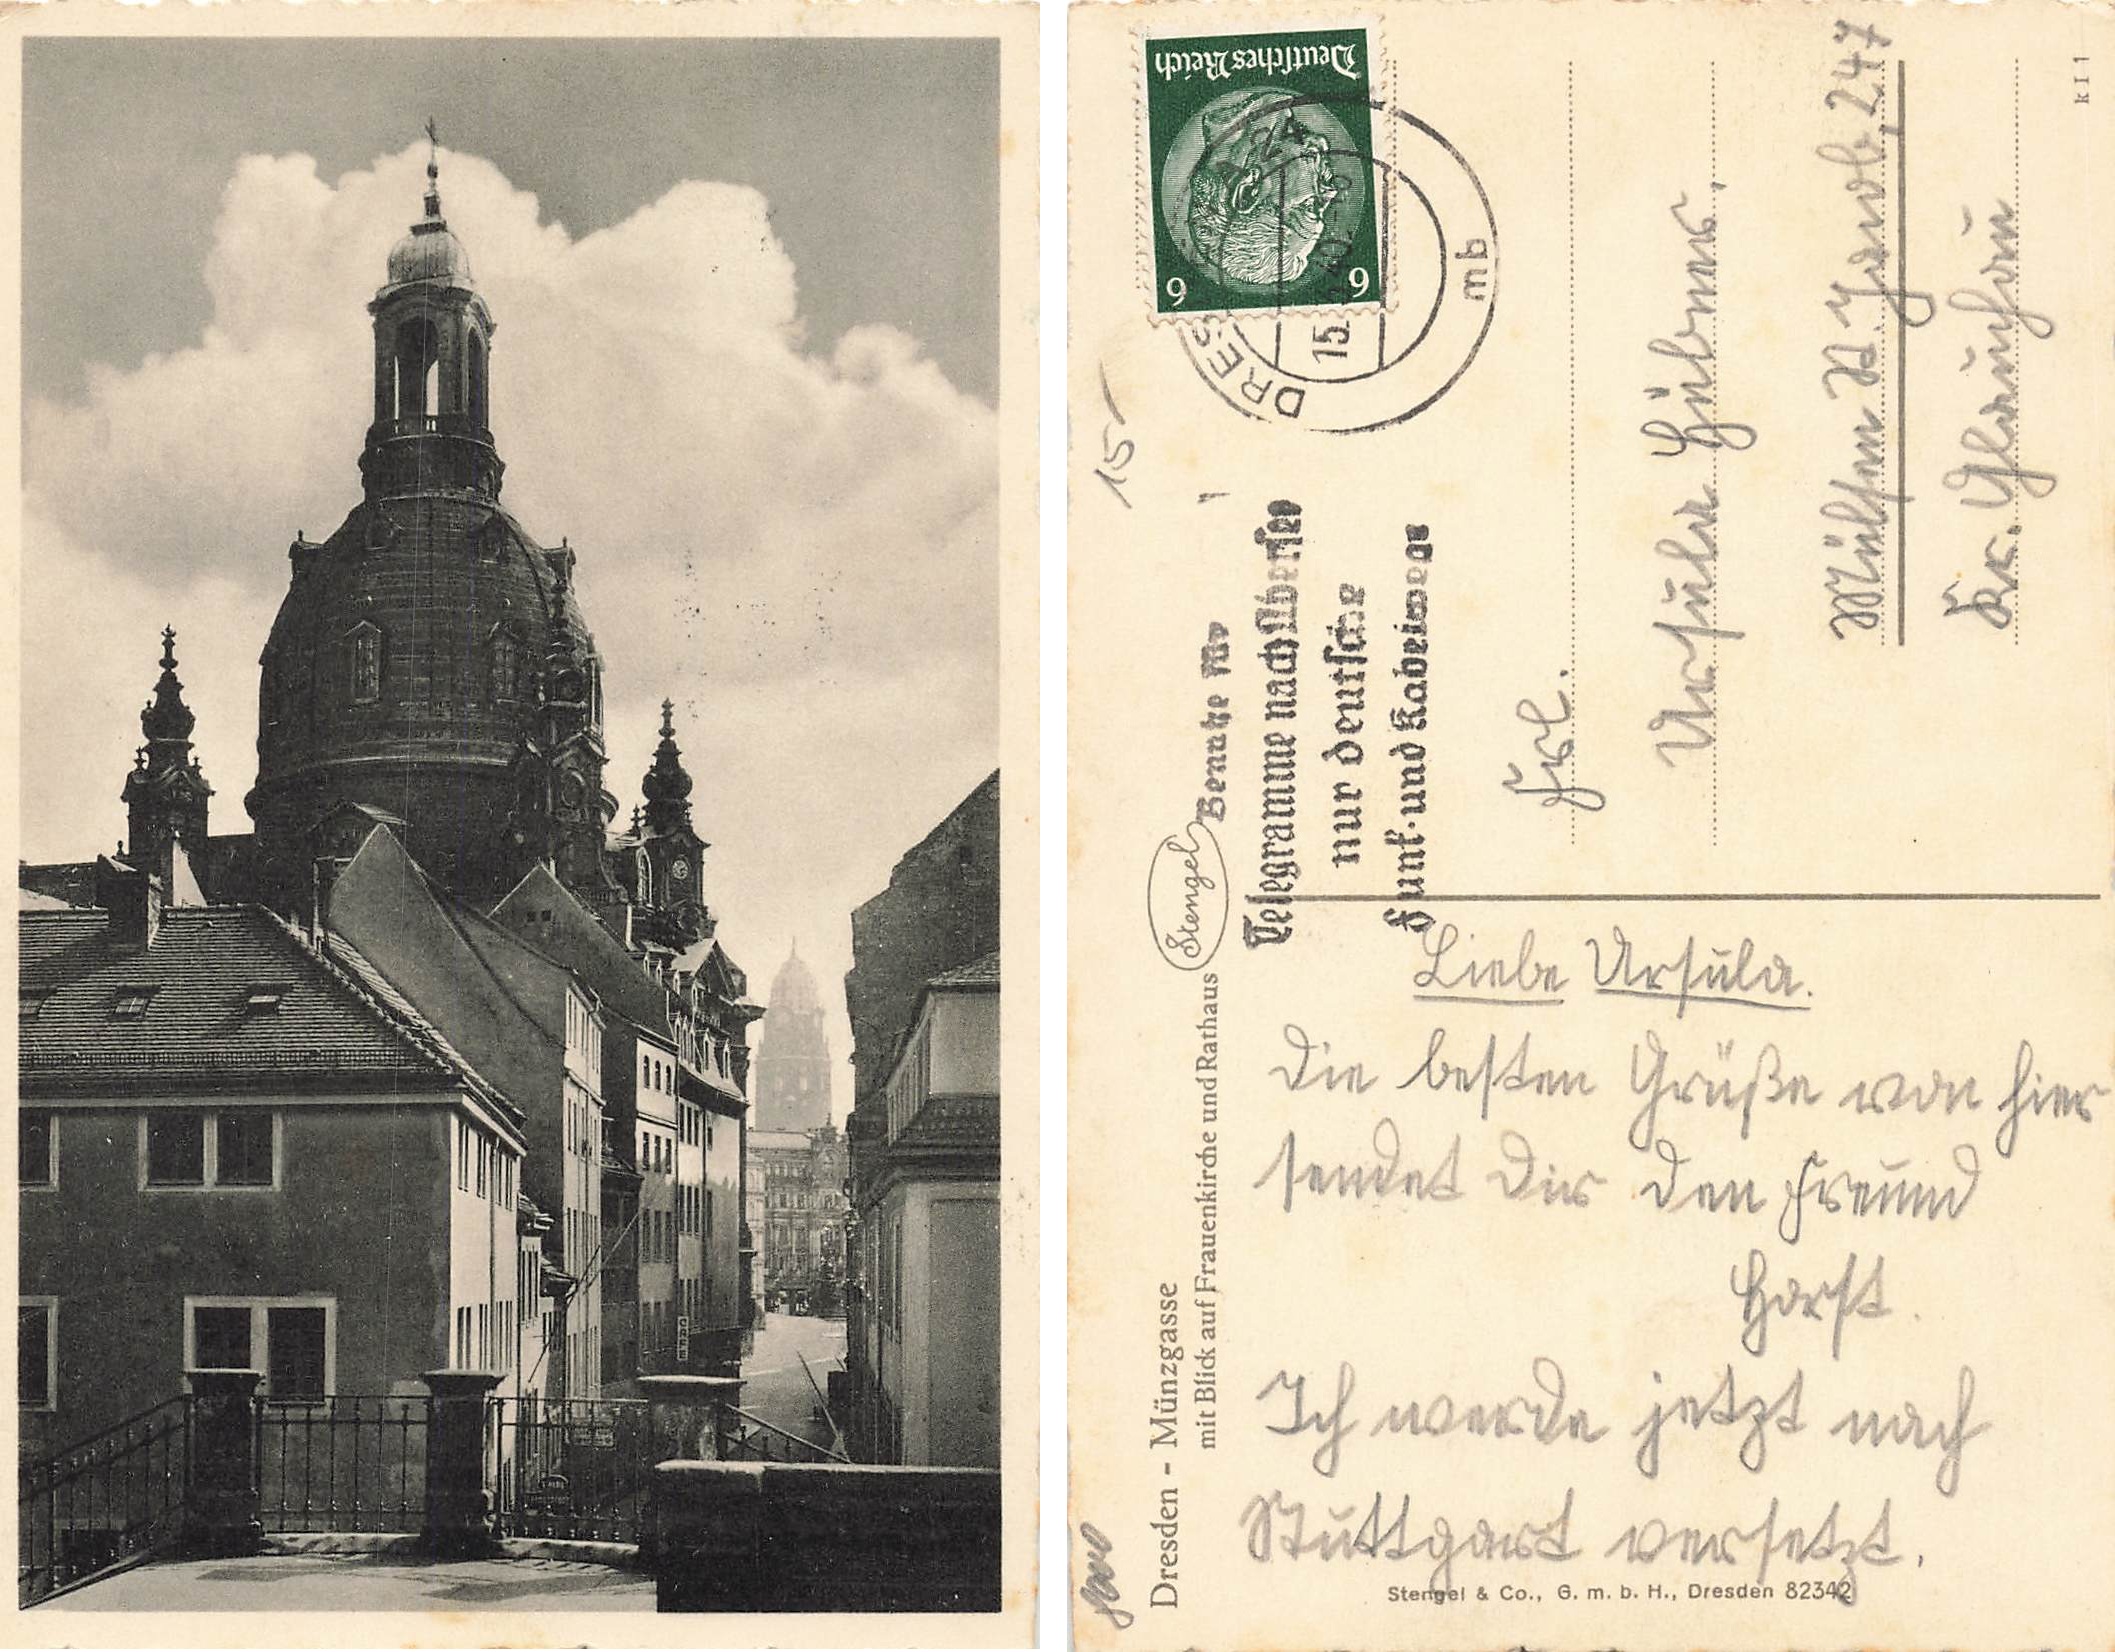 Deutsches Reich
6 6
DRES
24
15. 40
mb
15
Telegramme nach Übersee
nur deutsche
Funk- und Kabelwege
Frl.
Ursula Hübner,
Mülsen St. Jacob 247
Kr. Glauchau
k I 1
Stengel
Dresden - Münzgasse
mit Blick auf Frauenkirche und Rathaus
Liebe Ursula.
Die besten Grüße von hier
sendet Dir den Freund
Horst.
Ich werde jetzt nach
Stuttgart versetzt.
Stengel & Co., G. m. b. H., Dresden 82342